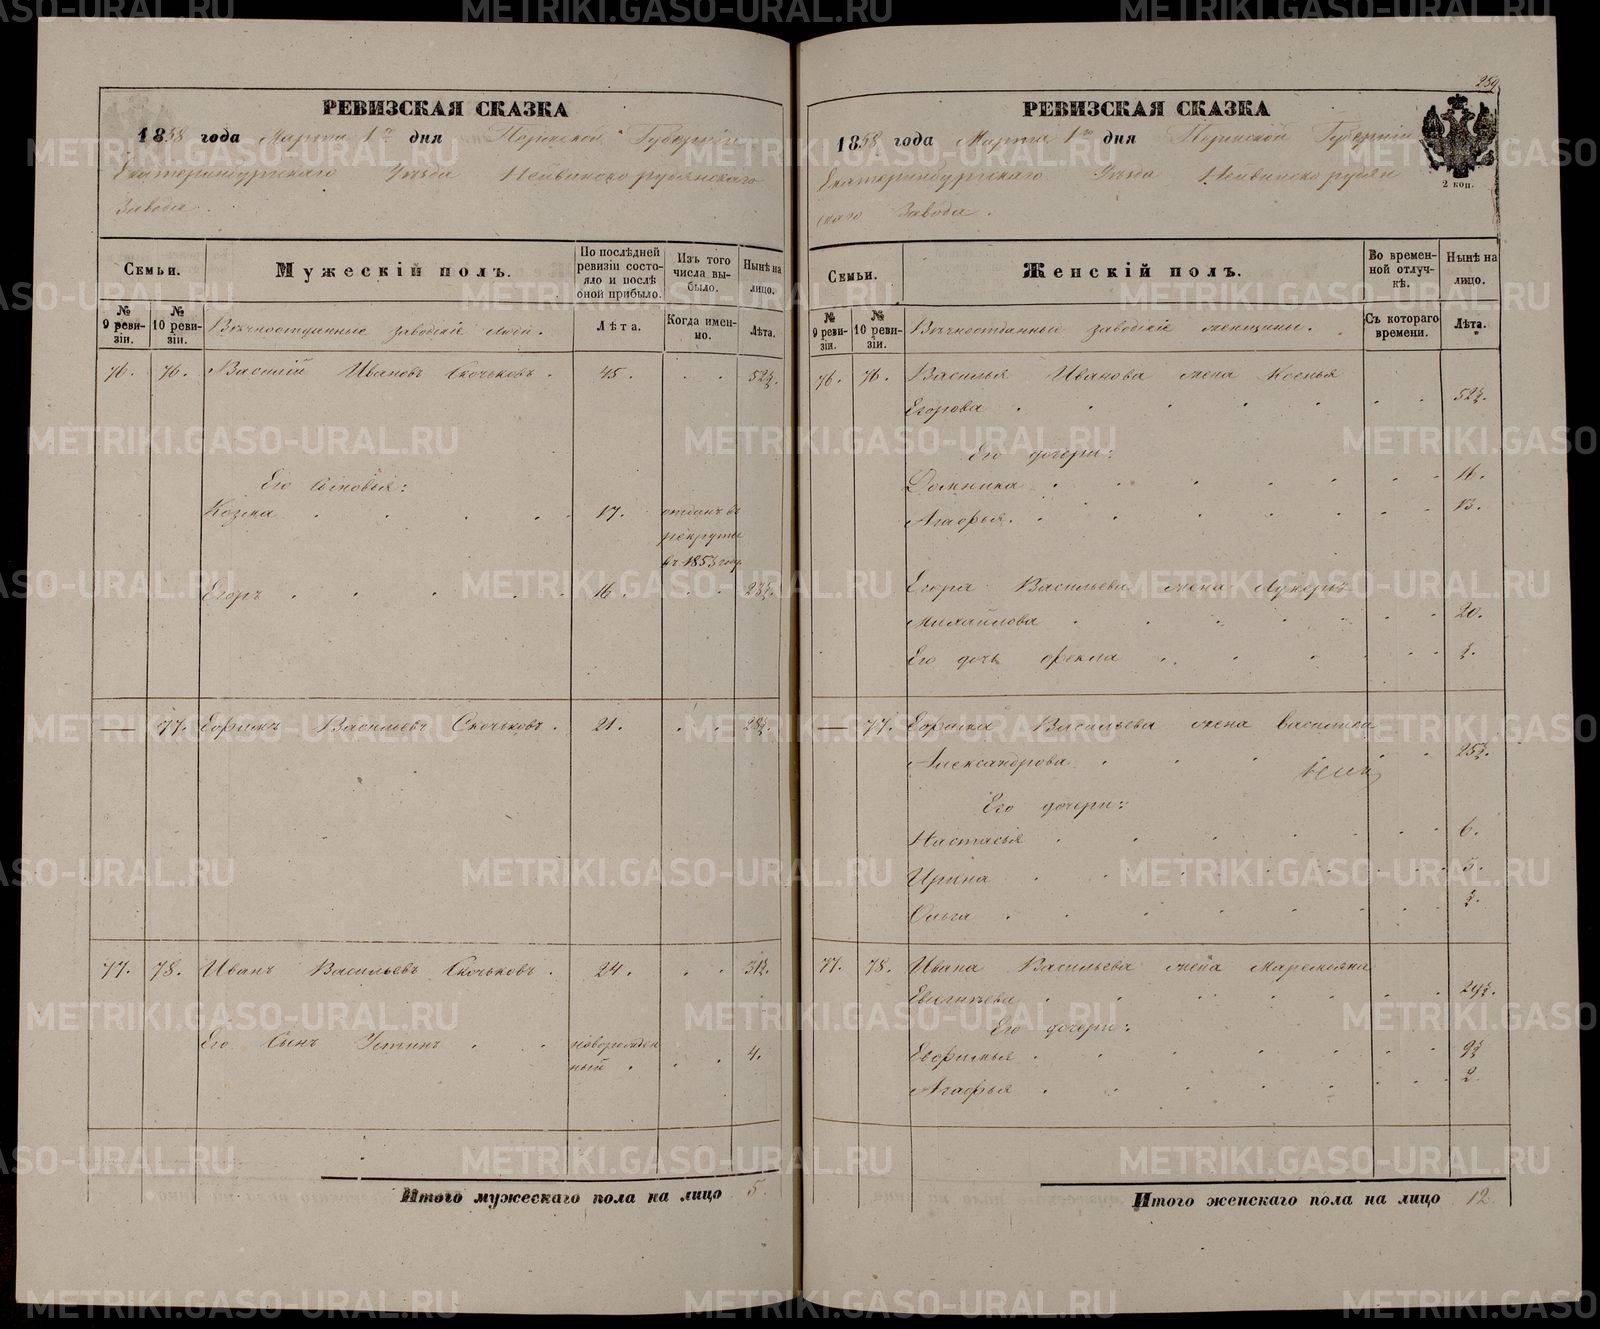 259
РЕВИЗСКАЯ СКАЗКА
1858 года Марта 1го дня Пермской Губернiи
Екатеринбургскаго Уѣзда Нейвинскорудянскаго
Завода.
Семьи.
Мужескiй полъ.
По послѣдней ревизiи состояло и послѣ оной прибыло.
Изъ того числа выбыло.
Нынѣ на лицо.
№ 9 ревизiи.
№ 10 ревизiи.
Вѣчноотданные заводскiе люди.
Лѣта.
Когда именно.
Лѣта.
76. 76. Василiй Ивановъ Скочковъ. 45. 52½.
Его сыновья:
Козма 17. отданъ въ
рекруты
въ 1853 году
Егоръ 16. 23½.
— 77. Ефимъ Васильевъ Скочковъ. 21. 28½.
77. 78. Иванъ Васильевъ Скочковъ. 24. 31½.
Его Сынъ Устинъ новорожден
ный 4.
Итого мужескаго пола на лицо 5.
РЕВИЗСКАЯ СКАЗКА
1858 года Марта 1го дня Пермской Губернiи
Екатеринбургскаго Уѣзда Нейвинскорудян
скаго Завода.
2 коп.
Семьи.
Женскiй полъ.
Во временной отлучкѣ.
Нынѣ на лицо.
№ 9 ревизiи.
№ 10 ревизiи.
Вѣчноотданные заводскiе женщины.
Съ котораго времени.
Лѣта.
76. 76. Василья Иванова жена Ксенья
Егорова 52½.
Его дочери:
Домника 16.
Агафья. 13.
Егора Васильева жена Лукерья
Михайлова 20.
Его дочь Фекла ½.
— 77. Ефима Васильева жена Василиса
Александрова 25½.
Его дочери:
Настасья 6.
Ирина 5.
Ольга ½.
77. 78. Ивана Васильева жена Маремьяна
Евсигнѣева 29½.
Его дочери:
Евфимья 9½
Агафья 2
Итого женскаго пола на лицо 12.
METRIKI.GASO-URAL.RU